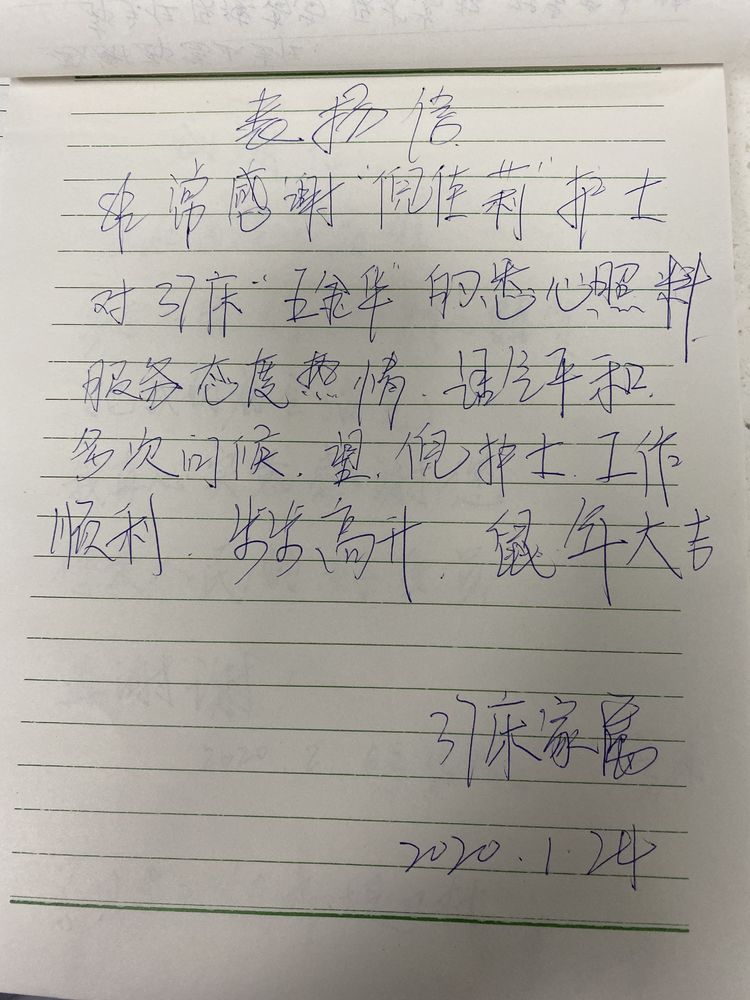 表扬信
非常感谢“倪佳莉”护士
对37床“五金华”的悉心照料
服务态度热情.语气平和.
多次问候.望.倪护士.工作
顺利.步步高升.鼠年大吉
37床家属
2020.1.24